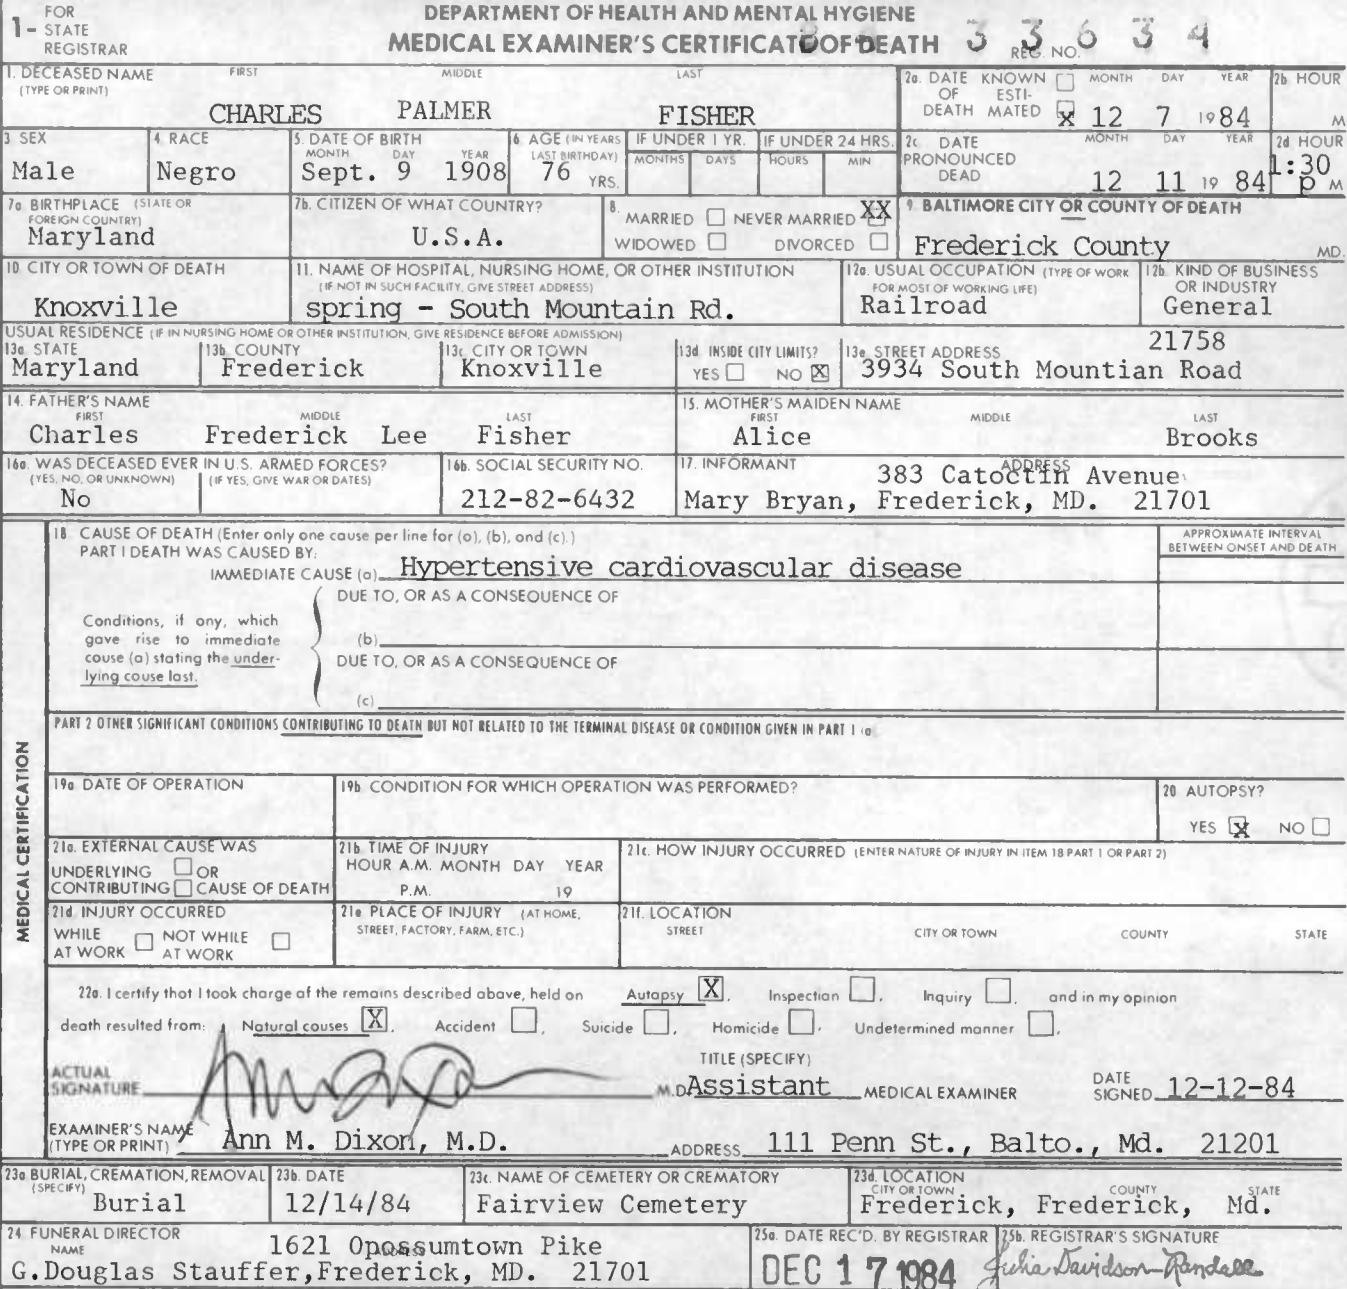 1- FOR STATE REGISTRAR
DEPARTMENT OF HEALTH AND MENTAL HYGIENE
MEDICAL EXAMINER'S CERTIFICATE OF DEATH
REG. NO. 33634
1. DECEASED NAME (TYPE OR PRINT) FIRST MIDDLE LAST
CHARLES PALMER FISHER
2a. DATE OF DEATH KNOWN ☐ ESTIMATED ☒ MONTH DAY YEAR
12 7 1984
2b HOUR M
3 SEX
Male
4. RACE
Negro
5. DATE OF BIRTH MONTH DAY YEAR
Sept. 9 1908
6 AGE (IN YEARS LAST BIRTHDAY)
76 YRS.
IF UNDER 1 YR. MONTHS DAYS
IF UNDER 24 HRS. HOURS MIN
2c DATE PRONOUNCED DEAD MONTH DAY YEAR
12 11 19 84
2d HOUR
1:30 p M
7a BIRTHPLACE (STATE OR FOREIGN COUNTRY)
Maryland
7b. CITIZEN OF WHAT COUNTRY?
U.S.A.
8. MARRIED ☐ NEVER MARRIED XX
WIDOWED ☐ DIVORCED ☐
9. BALTIMORE CITY OR COUNTY OF DEATH
Frederick County MD.
10 CITY OR TOWN OF DEATH
Knoxville
11. NAME OF HOSPITAL, NURSING HOME, OR OTHER INSTITUTION
(IF NOT IN SUCH FACILITY, GIVE STREET ADDRESS)
spring - South Mountain Rd.
12a. USUAL OCCUPATION (TYPE OF WORK FOR MOST OF WORKING LIFE)
Railroad
12b. KIND OF BUSINESS OR INDUSTRY
General
USUAL RESIDENCE (IF IN NURSING HOME OR OTHER INSTITUTION, GIVE RESIDENCE BEFORE ADMISSION)
13a STATE
Maryland
13b. COUNTY
Frederick
13c. CITY OR TOWN
Knoxville
13d. INSIDE CITY LIMITS?
YES ☐ NO ☒
13e. STREET ADDRESS 21758
3934 South Mountian Road
14. FATHER'S NAME
FIRST MIDDLE LAST
Charles Frederick Lee Fisher
15. MOTHER'S MAIDEN NAME
FIRST MIDDLE LAST
Alice Brooks
16a. WAS DECEASED EVER IN U.S. ARMED FORCES?
(YES, NO, OR UNKNOWN) (IF YES, GIVE WAR OR DATES)
No
16b. SOCIAL SECURITY NO.
212-82-6432
17. INFORMANT ADDRESS
383 Catoctin Avenue
Mary Bryan, Frederick, MD. 21701
MEDICAL CERTIFICATION
18. CAUSE OF DEATH (Enter only one cause per line for (a), (b), and (c).)
APPROXIMATE INTERVAL BETWEEN ONSET AND DEATH
PART I DEATH WAS CAUSED BY:
IMMEDIATE CAUSE (a) Hypertensive cardiovascular disease
DUE TO, OR AS A CONSEQUENCE OF
Conditions, if any, which
gave rise to immediate (b)
cause (a) stating the under-
lying cause last.
DUE TO, OR AS A CONSEQUENCE OF
(c)
PART 2 OTHER SIGNIFICANT CONDITIONS CONTRIBUTING TO DEATH BUT NOT RELATED TO THE TERMINAL DISEASE OR CONDITION GIVEN IN PART 1 (a)
19a DATE OF OPERATION
19b. CONDITION FOR WHICH OPERATION WAS PERFORMED?
20 AUTOPSY?
YES ☒ NO ☐
21a. EXTERNAL CAUSE WAS
UNDERLYING ☐ OR
CONTRIBUTING ☐ CAUSE OF DEATH
21b TIME OF INJURY
HOUR A.M. MONTH DAY YEAR
P.M. 19
21c. HOW INJURY OCCURRED (ENTER NATURE OF INJURY IN ITEM 18 PART 1 OR PART 2)
21d. INJURY OCCURRED
WHILE AT WORK ☐ NOT WHILE AT WORK ☐
21e. PLACE OF INJURY (AT HOME, STREET, FACTORY, FARM, ETC.)
21f. LOCATION
STREET CITY OR TOWN COUNTY STATE
22a. I certify that I took charge of the remains described above, held on Autopsy ☒, Inspection ☐, Inquiry ☐, and in my opinion
death resulted from: Natural causes ☒, Accident ☐, Suicide ☐, Homicide ☐, Undetermined manner ☐.
ACTUAL SIGNATURE M.D.
TITLE (SPECIFY)
Assistant MEDICAL EXAMINER
DATE SIGNED 12-12-84
EXAMINER'S NAME (TYPE OR PRINT) Ann M. Dixon, M.D.
ADDRESS 111 Penn St., Balto., Md. 21201
23a BURIAL, CREMATION, REMOVAL (SPECIFY)
Burial
23b. DATE
12/14/84
23c. NAME OF CEMETERY OR CREMATORY
Fairview Cemetery
23d. LOCATION
CITY OR TOWN COUNTY STATE
Frederick, Frederick, Md.
24 FUNERAL DIRECTOR
NAME
1621 Opossumtown Pike
G.Douglas Stauffer, Frederick, MD. 21701
25a. DATE REC'D. BY REGISTRAR
DEC 17 1984
25b. REGISTRAR'S SIGNATURE
Julia Davidson-Randall